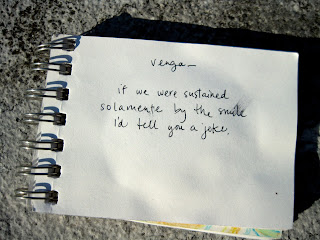 venga—
if we were sustained
solamente by the smile
I'd tell you a joke.